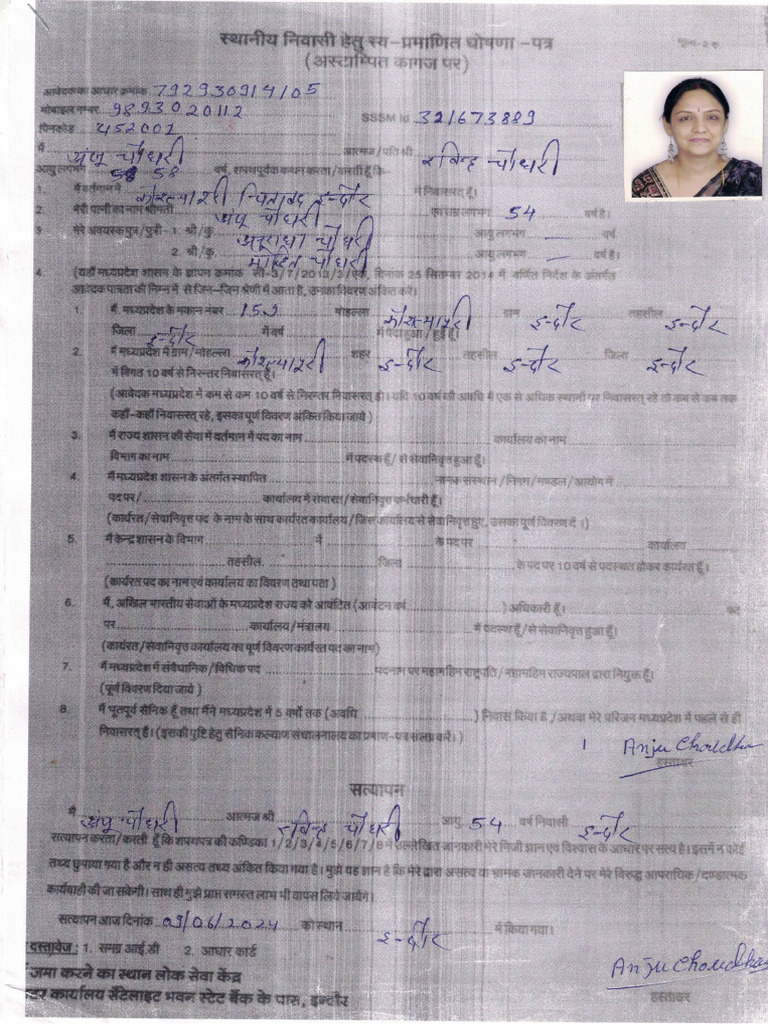 स्थानीय निवासी हेतु स्व-प्रमाणित घोषणा-पत्र
(अस्टाम्पित कागज पर)
आवेदक का आधार क्रमांक 792930914105
मोबाइल नम्बर 9893020112 SSSM Id 321673889
पिनकोड 452001
मैं अंजू चौधरी आत्मज/पति श्री रविन्द्र चौधरी
आयु लगभग 58 वर्ष, शपथपूर्वक कथन करता/करती हूँ कि-
1. मैं वर्तमान में इन्दौर में निवासरत् हूँ।
2. मेरी पत्नी का नाम श्रीमती अंजू चौधरी उम्र लगभग 54 वर्ष है।
3. मेरे अवयस्क पुत्र/पुत्री- 1. श्री/कु. अनुराधा चौधरी आयु लगभग — वर्ष
2. श्री/कु. मोहित चौधरी आयु लगभग — वर्ष है।
4. (यहाँ मध्यप्रदेश शासन के ज्ञापन क्रमांक सी-3/7/2013/3/एक, दिनांक 25 सितम्बर 2014 में वर्णित निर्देश के अंतर्गत
आवेदक पात्रता की निम्न में से जिन-जिन श्रेणी में आता है, उनका विवरण अंकित करें।)
1. मैं, मध्यप्रदेश के मकान नंबर 153 मोहल्ला ग्राम इन्दौर तहसील इन्दौर
जिला इन्दौर में वर्ष में पैदा हुआ/हुई हूँ।
2. मैं मध्यप्रदेश में ग्राम/मोहल्ला शहर इन्दौर तहसील इन्दौर जिला इन्दौर
में विगत 10 वर्ष से निरन्तर निवासरत् हूँ।
(आवेदक मध्यप्रदेश में कम से कम 10 वर्ष से निरन्तर निवासरत् हो। यदि 10 वर्ष की अवधि में एक से अधिक स्थानों पर निवासरत् रहे तो कब से कब तक
कहाँ-कहाँ निवासरत् रहे, इसका पूर्ण विवरण अंकित किया जाये)
3. मैं राज्य शासन की सेवा में वर्तमान में पद का नाम कार्यालय का नाम
विभाग का नाम में पदस्थ हूँ/से सेवानिवृत्त हुआ हूँ।
4. मैं मध्यप्रदेश शासन के अंतर्गत स्थापित नामक संस्थान/निगम/मण्डल/आयोग में
पद पर/ कार्यालय में सेवारत/सेवानिवृत्त कर्मचारी हूँ।
(कार्यरत/सेवानिवृत्त पद के नाम के साथ कार्यरत कार्यालय/जिस कार्यालय से सेवानिवृत्त हुए, उसका पूर्ण विवरण दें।)
5. मैं केन्द्र शासन के विभाग में के पद पर कार्यालय
तहसील जिला के पद पर 10 वर्ष से पदस्थ होकर कार्यरत हूँ।
(कार्यरत पद का नाम एवं कार्यालय का विवरण तथा पता)
6. मैं, अखिल भारतीय सेवाओं के मध्यप्रदेश राज्य को आवंटित (आवंटन वर्ष ) अधिकारी हूँ।
पर कार्यालय/मंत्रालय में पदस्थ हूँ/से सेवानिवृत्त हुआ हूँ।
(कार्यरत/सेवानिवृत्त कार्यालय का पूर्ण विवरण कार्यरत पद का नाम)
7. मैं मध्यप्रदेश में संवैधानिक/विधिक पद पदनाम पर महामहिम राष्ट्रपति/महामहिम राज्यपाल द्वारा नियुक्त हूँ।
(पूर्ण विवरण दिया जाये)
8. मैं भूतपूर्व सैनिक हूँ तथा मैंने मध्यप्रदेश में 5 वर्षों तक (अवधि ) निवास किया है/अथवा मेरे परिजन मध्यप्रदेश में पहले से ही
निवासरत् हैं। (इसकी पुष्टि हेतु सैनिक कल्याण संचालनालय का प्रमाण-पत्र संलग्न करें।)
Anju Choudha
हस्ताक्षर
सत्यापन
मैं अंजू चौधरी आत्मज श्री रविन्द्र चौधरी आयु 54 वर्ष निवासी इन्दौर
सत्यापन करता/करती हूँ कि शपथपत्र की कण्डिका 1/2/3/4/5/6/7/8 में उल्लेखित जानकारी मेरे निजी ज्ञान एवं विश्वास के आधार पर सत्य है। इसमें न कोई
तथ्य छुपाया गया है और न ही असत्य तथ्य अंकित किया गया है। मुझे यह ज्ञान है कि मेरे द्वारा असत्य या भ्रामक जानकारी देने पर मेरे विरूद्ध आपराधिक/दण्डात्मक
कार्यवाही की जा सकेगी। साथ ही मुझे प्राप्त समस्त लाभ भी वापस लिये जायेंगे।
सत्यापन आज दिनांक 09/06/2024 को स्थान इन्दौर में किया गया।
दस्तावेज : 1. समग्र आई.डी 2. आधार कार्ड
जमा करने का स्थान लोक सेवा केंद्र
कार्यालय सेटेलाइट भवन स्टेट बैंक के पास, इन्दौर
Anju Choudha
हस्ताक्षर